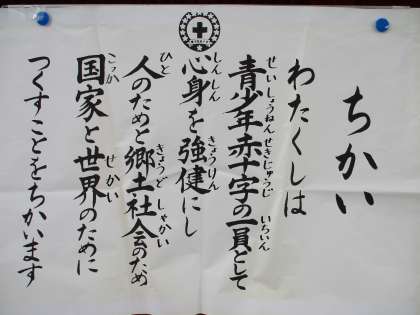 ちかい
わたくしは
せいしょうねんせきじゅうじ
青少年赤十字の一員として
しんしん
心身を強健にし
ひと きょうど しゃかい
人のためと郷土社会のため
こっか せかい
国家と世界のために
つくすことをちかいます